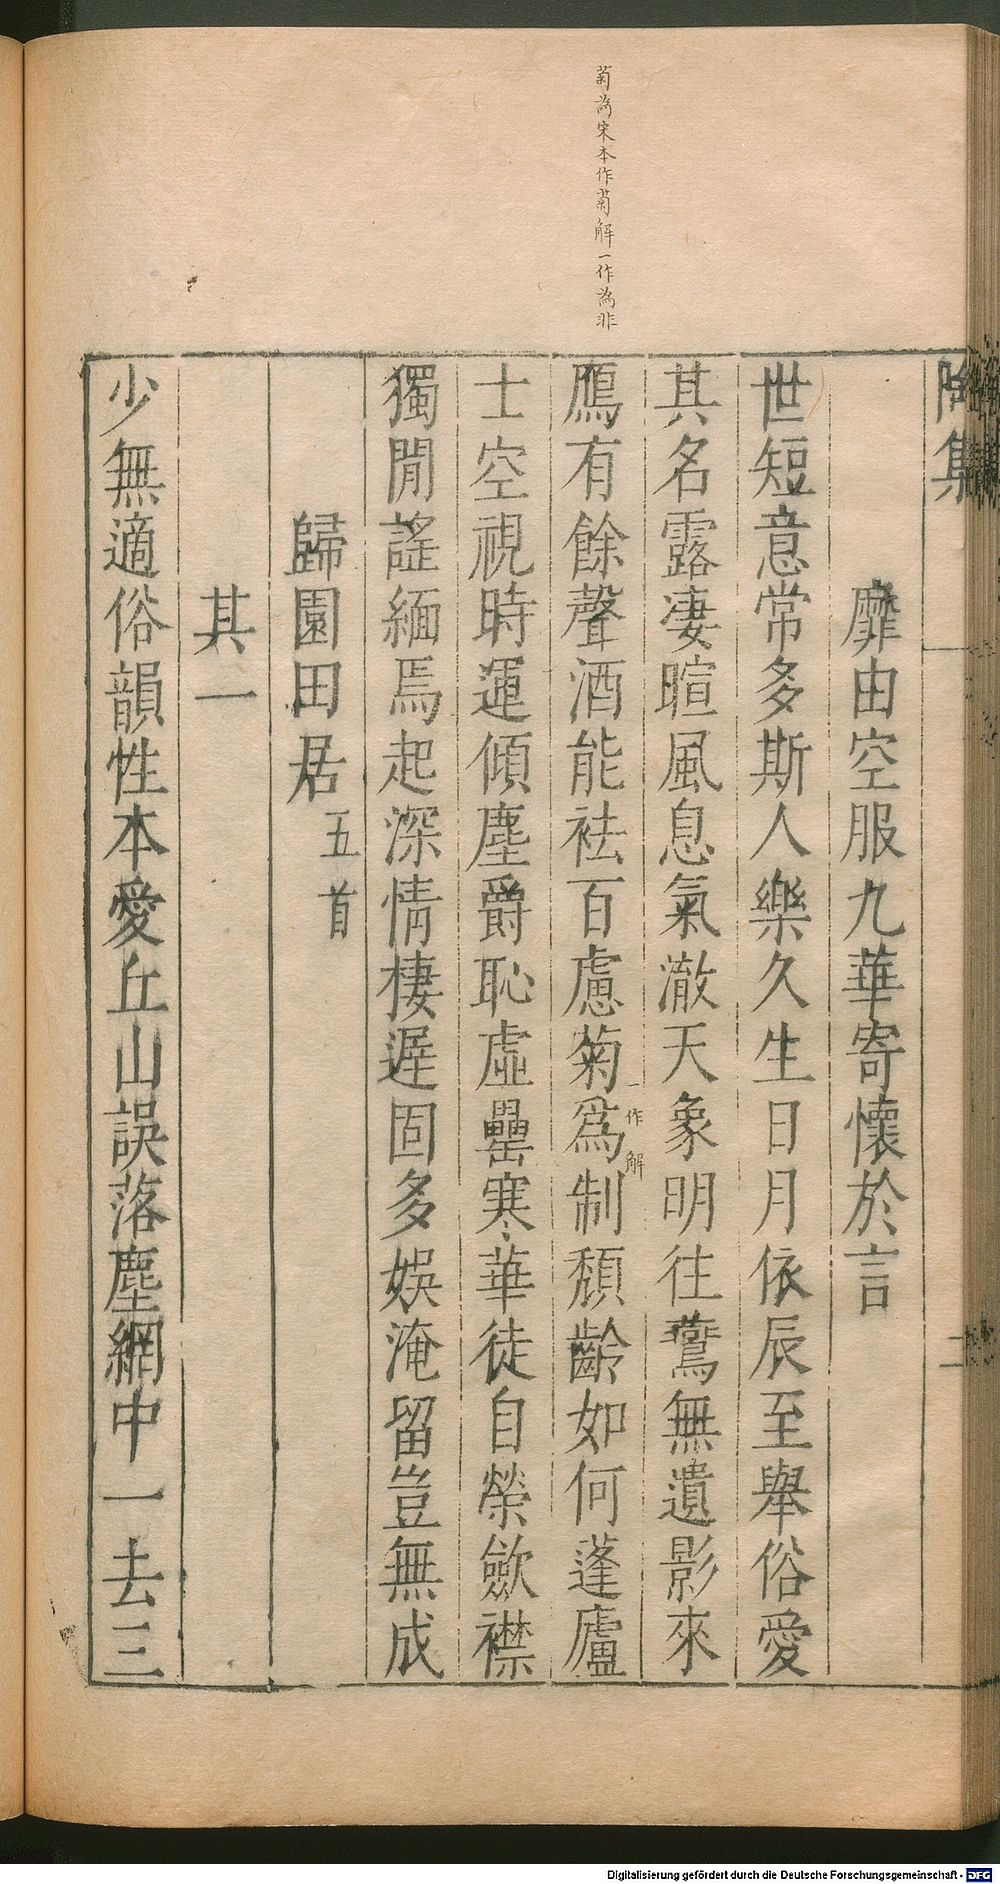 菊為宋本作菊解一作為非
陶集
二
靡由空服九華寄懷於言
世短意常多斯人樂久生日月依辰至舉俗愛
其名露凄暄風息氣澈天象明往鷰無遺影來
鴈有餘聲酒能袪百慮菊爲一作解制頹齡如何蓬廬
士空視時運傾塵爵恥虛罍寒華徒自榮斂襟
獨閒謠緬焉起深情棲遲固多娛淹留豈無成
歸園田居五首
其一
少無適俗韻性本愛丘山誤落塵網中一去三
Digitalisierung gefördert durch die Deutsche Forschungsgemeinschaft - DFG